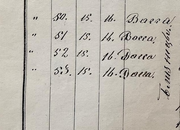 " 50. 15. 16. Bacca
" 51 15. 16. Dacca.
" 52 15. 16. Dacca
" 53. 15. 16. Dacca.